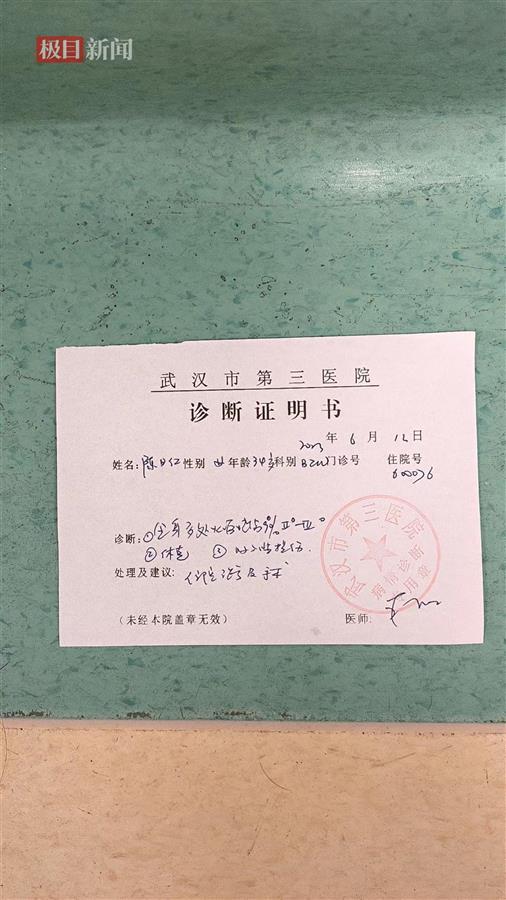 极目新闻
武汉市第三医院
诊断证明书
2023年6月12日
姓名：陈 仁性别 女年龄34岁科别BICU门诊号 住院号
600036
诊断：①全身多处火焰烧伤 % Ⅱ°-Ⅲ°
②休克 ③吸入性损伤.
处理及建议：住院治疗及手术
（未经本院盖章无效） 医师：
武汉市第三医院
病情诊断
专用章